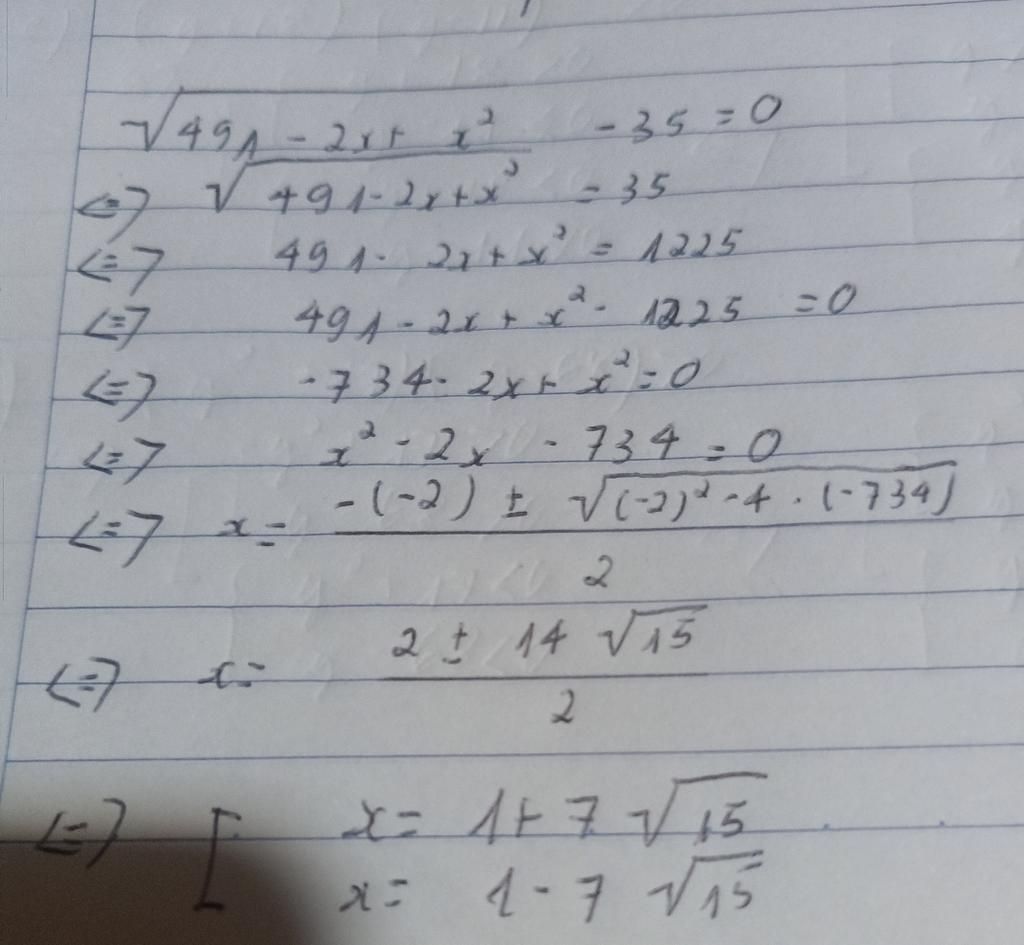 √(491 - 2x + x²) - 35 = 0
<=> √(491 - 2x + x²) = 35
<=> 491 - 2x + x² = 1225
<=> 491 - 2x + x² - 1225 = 0
<=> -734 - 2x + x² = 0
<=> x² - 2x - 734 = 0
<=> x = (-(-2) ± √((-2)² - 4 . (-734))) / 2
<=> x = (2 ± 14√15) / 2
<=> [ x = 1 + 7√15
x = 1 - 7√15